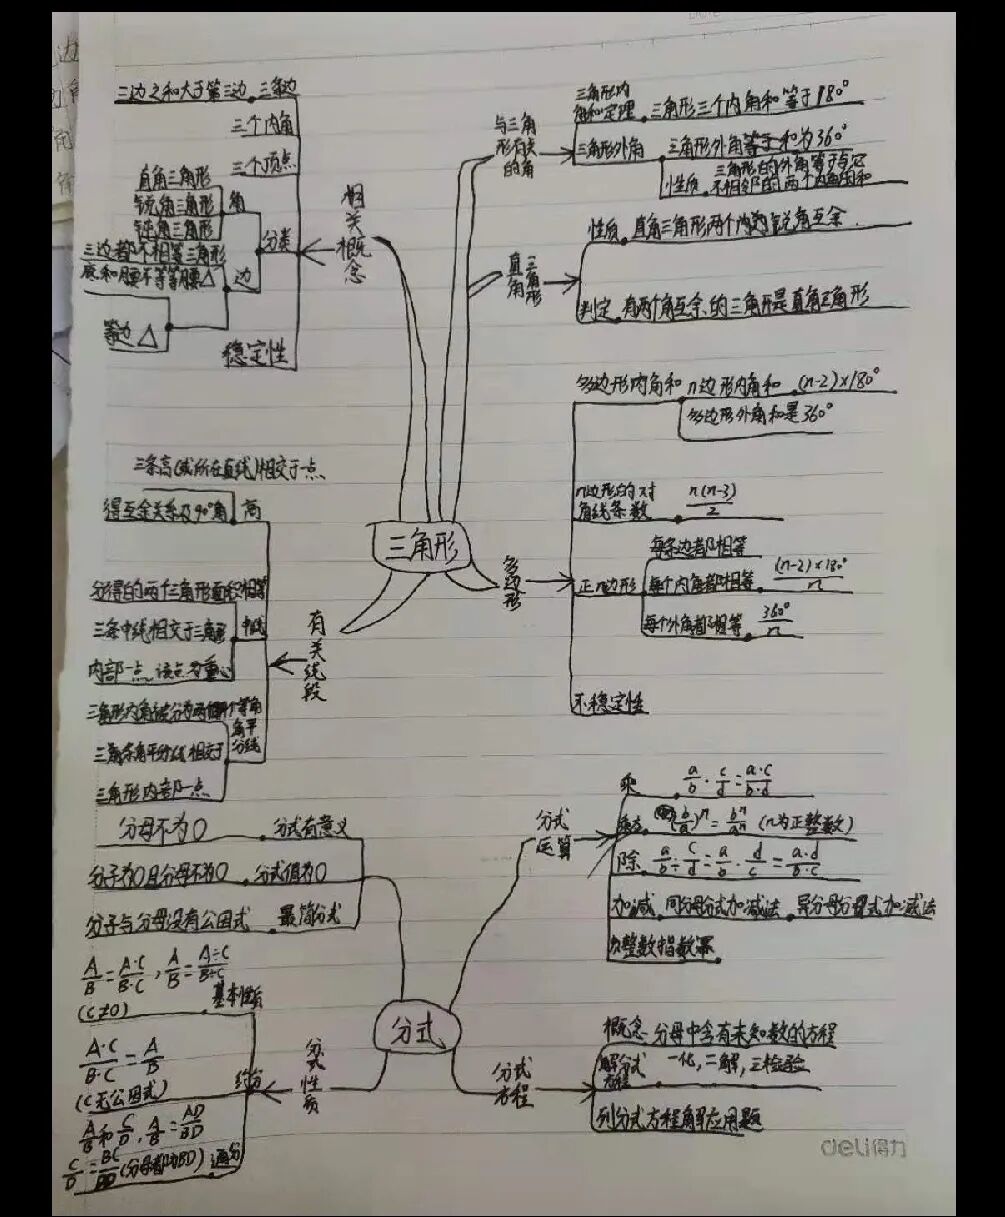 三边之和大于第三边 三条边
三个内角
三个顶点
相关概念
直角三角形
锐角三角形
钝角三角形
角
分类
三边都不相等三角形
底和腰不等等腰△
边
等边△
稳定性
与三角形有关的角
三角形内角和定理 三角形三个内角和等于180°
三角形外角 三角形外角等于和为360°
性质 三角形的外角等于与它
不相邻的两个内角的和
直角三角形
性质 直角三角形两个内为锐角互余
判定 有两个角互余的三角形是直角三角形
三角形
多边形
多边形内角和 n边形内角和 (n-2)×180°
多边形外角和是360°
n边形的对角线条数 n(n-3)/2
正n边形
每条边都相等
每个内角都相等 (n-2)×180°/n
每个外角都相等 360°/n
不稳定性
有关线段
三条高(或所在直线)相交于一点
得互余关系及90°角 高
分得的两个三角形面积相等
三条中线相交于三角形
内部一点,该点为重心
中线
三角形内角被分为两个等角
三角条角平分线相交于
三角形内部一点
角平分线
分式
分母不为0 分式有意义
分子为0且分母不为0 分式值为0
分子与分母没有公因式 最简分式
分式运算
乘 a/b · c/d = a·c/b·d
乘方 (b/a)ⁿ = bⁿ/aⁿ (n为正整数)
除 a/b ÷ c/d = a/b · d/c = a·d/b·c
加减 同分母分式加减法 异分母分式加减法
负整数指数幂
分式性质
A/B = A·C/B·C , A/B = A÷C/B÷C
(C≠0) 基本性质
A·C/B·C = A/B
(C无公因式) 约分
A/B和C/D , A/B = AD/BD
C/D = BC/BD (分母都为BD) 通分
分式方程
概念 分母中含有未知数的方程
解分式方程 一化,二解,三检验
列分式方程解应用题
deli得力